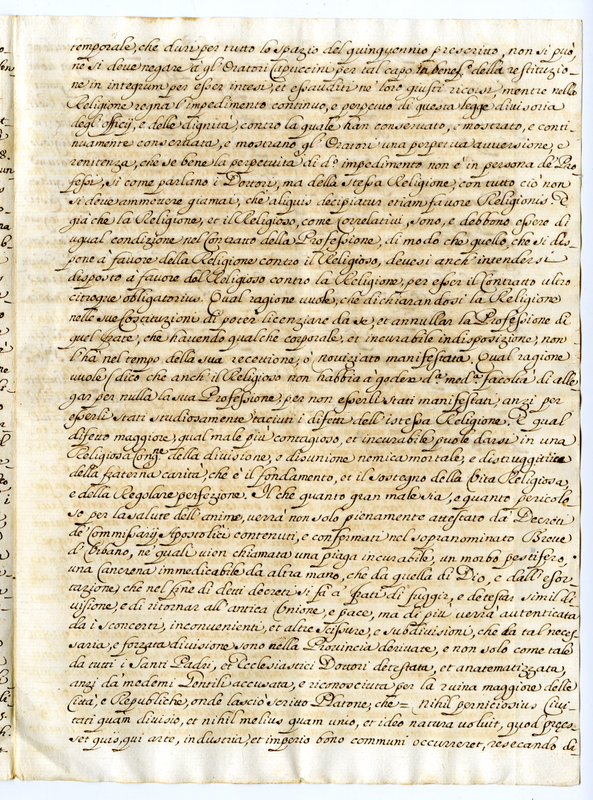 temporale, che duri per tutto lo spazio del quinquennio prescritto, non si può,
ne si deve negare à gl'Oratori Capuccini per tal capo il benefº della restituzio-
ne in integrum per esser intesi, et essauditi ne loro giusti ricorsi, mentre nella
Religione regna l'impedimento continuo, e perpetuo di questa legge divisoria
degl'officij, e delle dignità, contro la quale han conservato, e mostrato, e conti-
nuamente conservano, e mostrano gl'Oratori una perpetua avversione, e
renitenza, che se bene la perpetuità di dº impedimento non è in persona de Pro-
fessi, si come parlano i Dottori, ma della stessa Religione, con tutto ciò non
si deve ammettere giamai, che aliquis decipiatur etiam favore Religionis. E
già che la Religione, et il Religioso, come correlativi, sono, e debbono essere di
ugual condizione nel Contratto della Professione, di modo che quello, che si dis-
pone à favore della Religione contro il Religioso, devesi anch'intendersi
disposto à favore del Religioso contro la Religione, per esser il Contratto ultro
citroque obligatorius. Qual ragione vuole, che dichiarandosi la Religione
nelle sue Costituzioni di poter licenziare da se, et annullar la Professione di
quel frate, che havendo qualche corporale, et incurabile indisposizione, non
l'hà nel tempo della sua recezione, ò novitiato manifestata. Qual ragione
vuole (dico che anch'il Religioso non habbia à godere dª medª facoltà di alle-
gar per nulla la sua Professione, per non esserli stati manifestati, anzi per
esserli stati studiosamente taciuti i difetti dell'istessa Religione. E qual
difetto maggiore, qual male più contagioso, et incurabile puole darsi in una
Religiosa Congne della divisione, e disunione nemica mortale, e distruggitrice
della fraterna carità, che è il fondamento, et il sostegno della Vita Religiosa,
e della Regolare perfezione. Il che quanto gran male sia, e quanto pericolo-
so per la salute dell'anime, verrà non solo pienamente attestato da Decreti
de Commissarij Apostolici contenuti, e confirmati nel sopranominato Breve
di Urbano, ne quali vien chiamata una piaga incurabile, un morbo pestifero,
una Cancrena immedicabile da altra mano, che da quella di Dio, e dall'esor-
tazione, che nel fine di detti decreti si fà à frati di fuggir, e detestar simil di-
visione, e di ritornar all'antica Unione, e pace, ma di più verrà autenticata
da i sconcerti, inconvenienti, et altre scissure, e subdivisioni, che da tal neces-
saria, e forzata divisione sono nella Provincia derivate, e non solo come tale
da tutti i Santi Padri, et Ecclesiastici Dottori detestata, et anatematizzata,
anzi da medemi Gentili accusata, e riconosciuta per la ruina maggiore delle
Città, e Republiche, onde lasciò scritto Platone, che = nihil perniciosius Civi-
tati quam divisio, et nihil melius quam unio, et ideo natura voluit, quod præes-
set quis, qui arte, industria, et imperio bono communi occurreret, resecando di